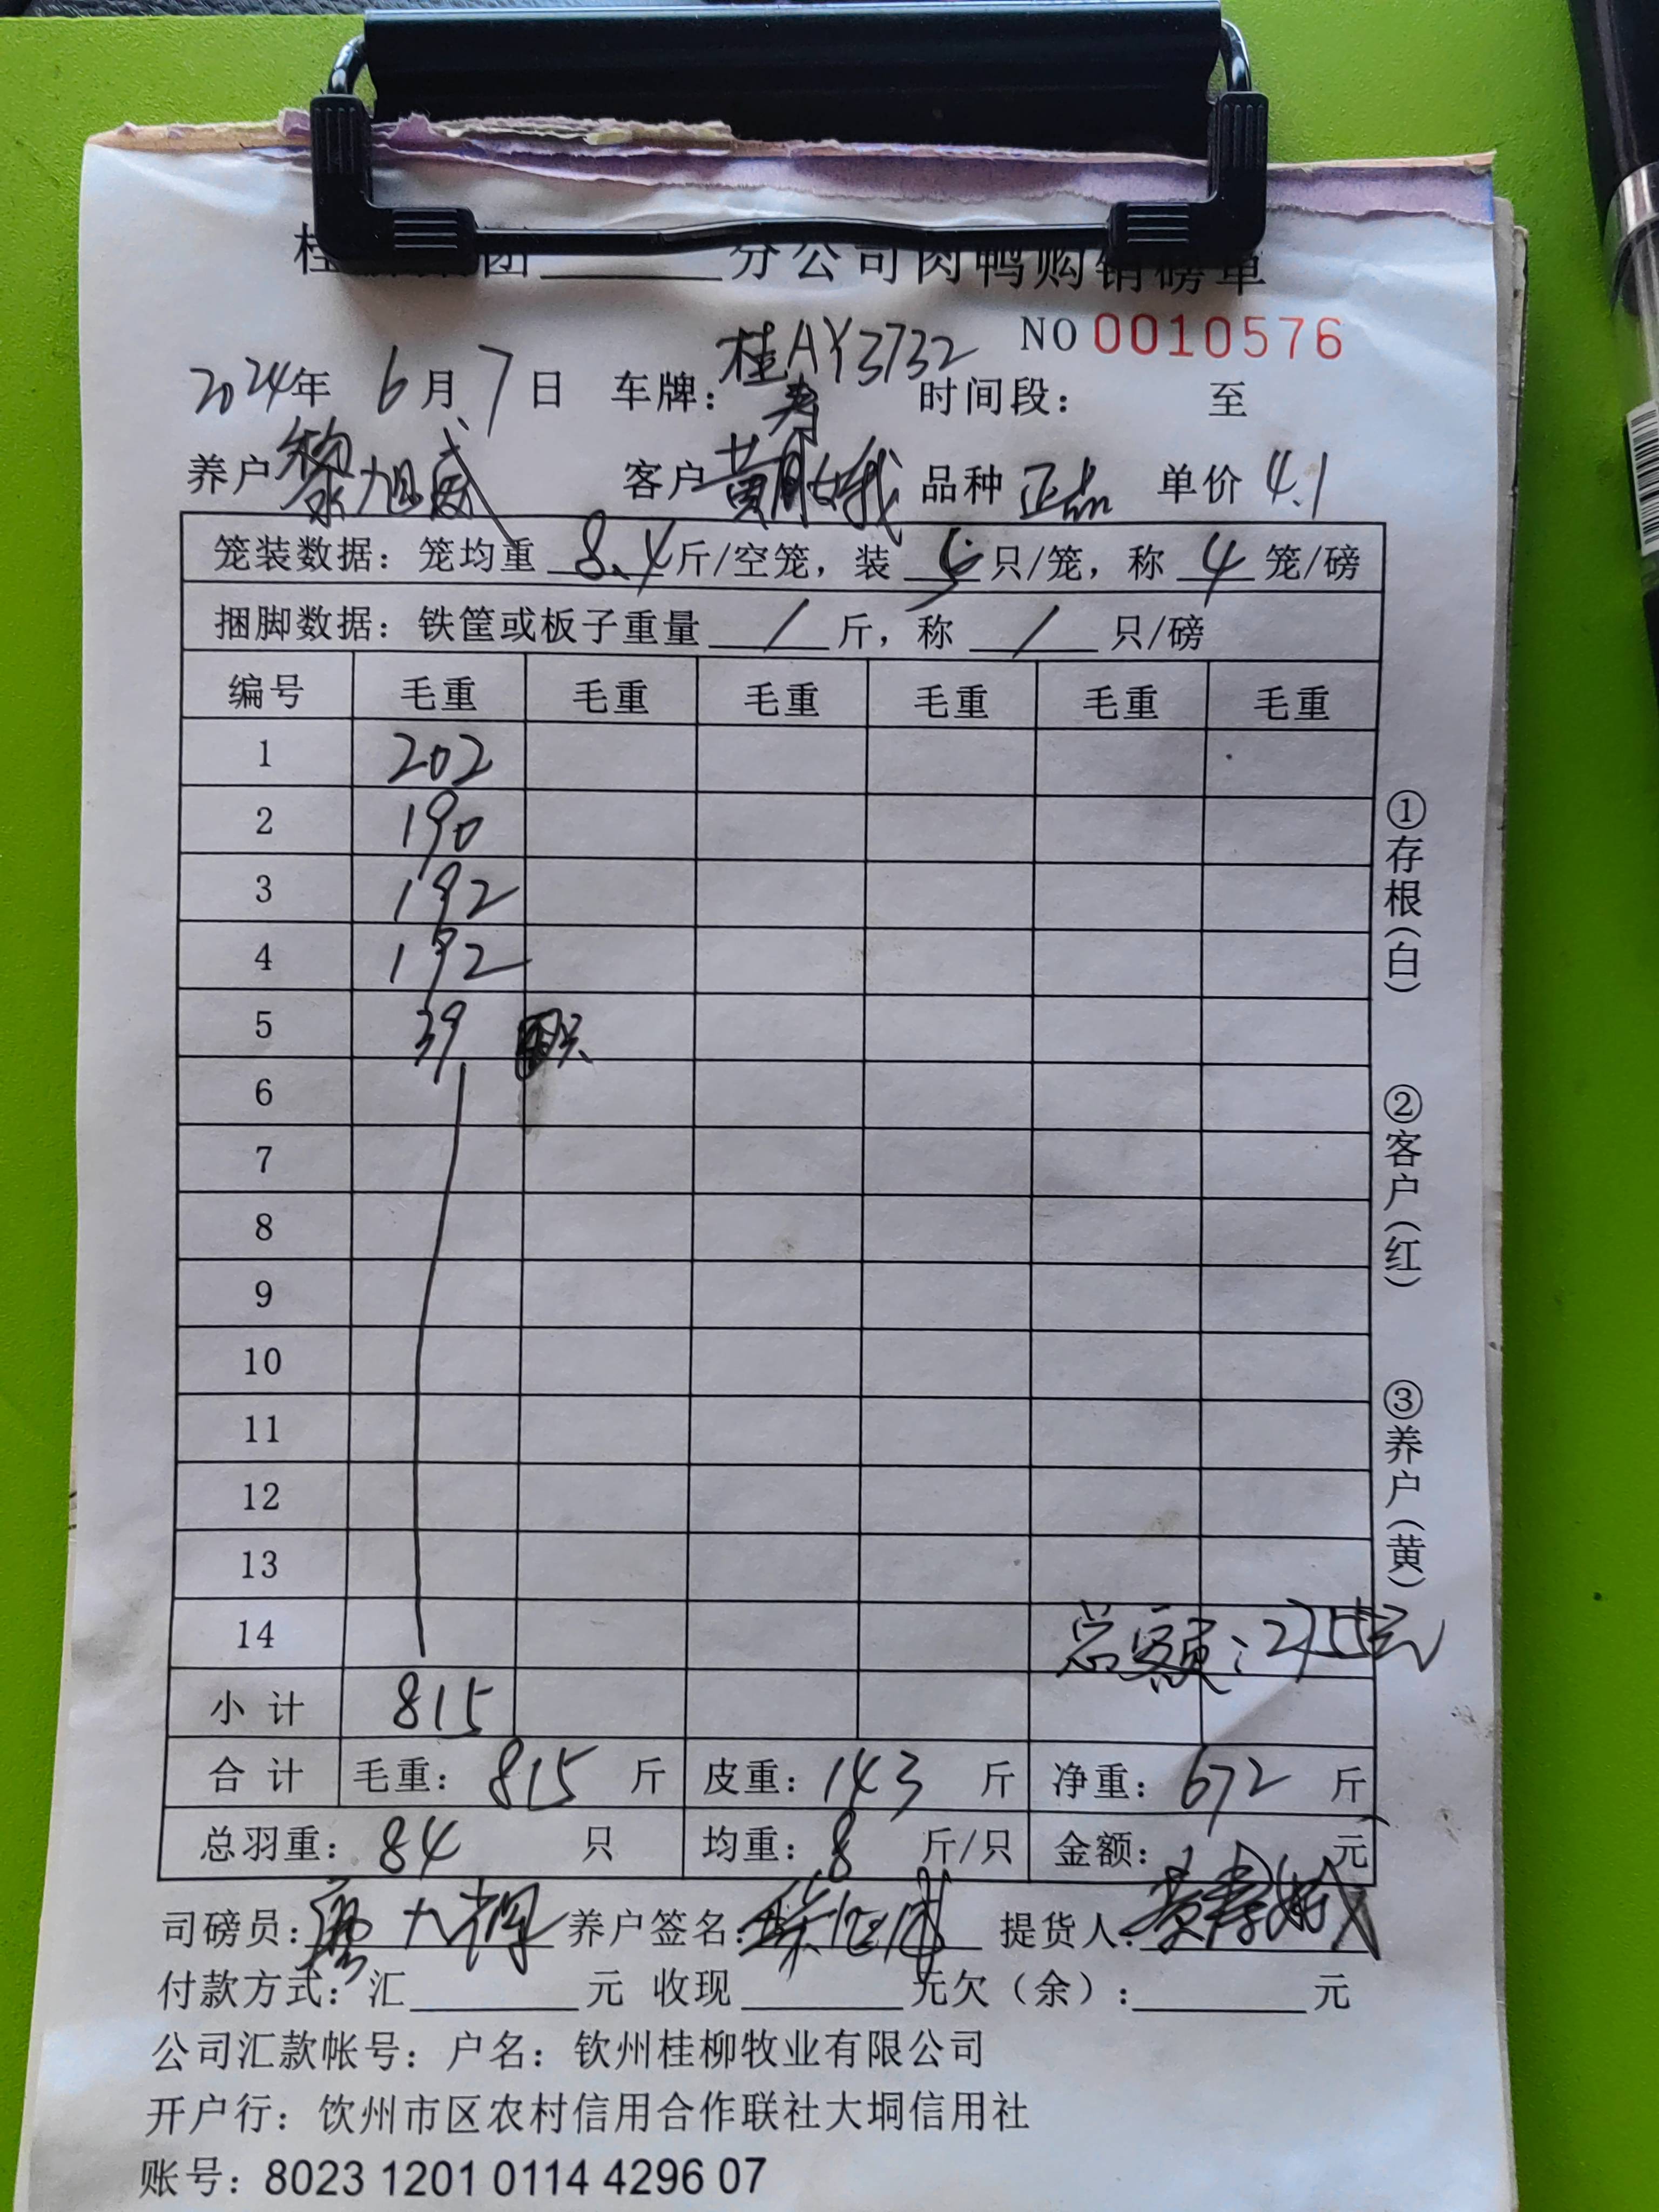 团______分公司肉鸭购销磅单
NO 0010576
2024年 6月 7日 车牌: 桂AY3732 时间段: 至
寿
养户 黎旭威 客户 黄 娥 品种 正品 单价 4.1
笼装数据: 笼均重 8.4 斤/空笼, 装 5 只/笼, 称 4 笼/磅
捆脚数据: 铁筐或板子重量 / 斤, 称 / 只/磅
编号 毛重 毛重 毛重 毛重 毛重 毛重
1 202
2 190
3 192
4 192
5 39 只
6
7
8
9
10
11
12
13
14 总额: 2755元
小计 815
合计 毛重: 815 斤 皮重: 143 斤 净重: 672 斤
总羽重: 84 只 均重: 8 斤/只 金额: 元
司磅员: 养户签名: 提货人: 黄寿娥
付款方式: 汇______元 收现______元欠(余):______元
公司汇款帐号: 户名: 钦州桂柳牧业有限公司
开户行: 饮州市区农村信用合作联社大垌信用社
账号: 8023 1201 0114 4296 07
①存根(白)
②客户(红)
③养户(黄)